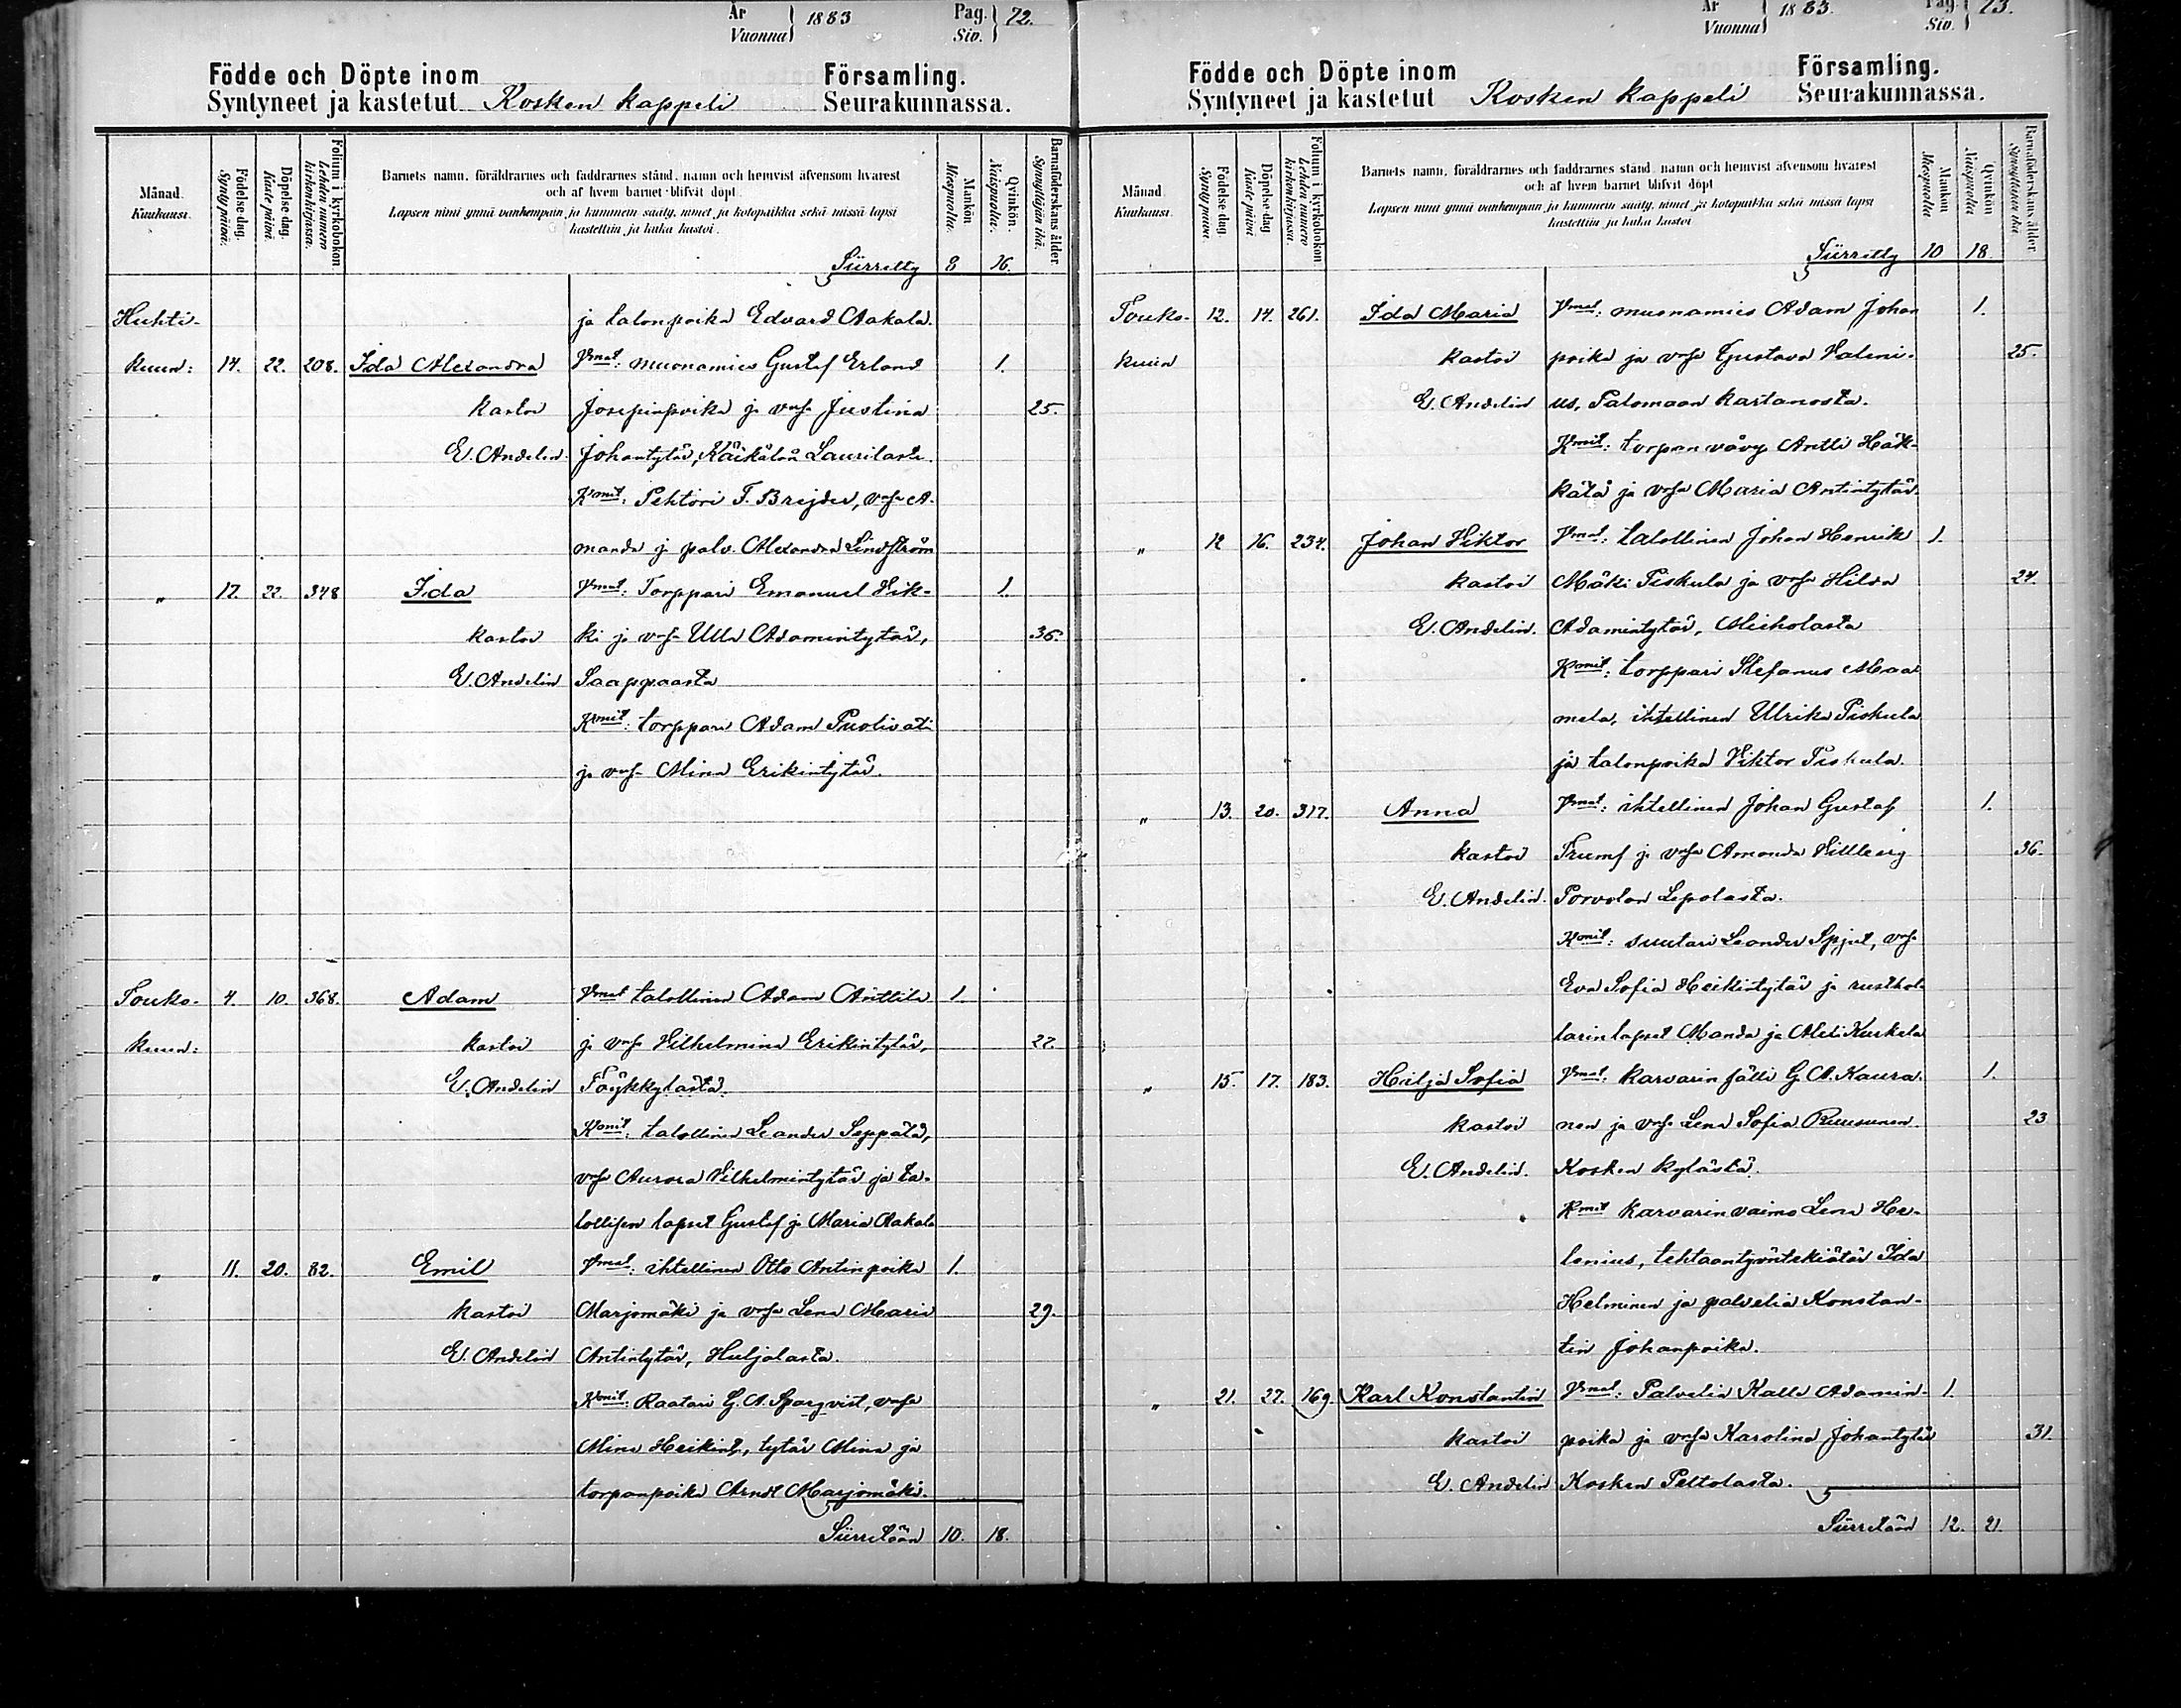 År
Vuonna } 1883
Pag.
Siv. } 72.
Födde och Döpte inom Församling.
Syntyneet ja kastetut Kosken kappeli Seurakunnassa.
Månad.
Kuukausi.
Födelse-dag.
Synty päivä.
Döpelse-dag.
Kaste päivä.
Folium i kyrkoboken.
Lehden numero
kirkonkirjassa.
Barnets namn, föräldrarnes och faddrarnes stånd, namn och hemvist äfvensom hvarest
och af hvem barnet blifvit döpt.
Lapsen nimi ynnä vanhempain ja kummein sääty, nimet ja kotopaikka sekä missä lapsi
kastettiin ja kuka kastoi.
Mankön.
Miespuolta.
Qvinkön.
Naispuolta.
Barnaföderskans ålder
Synnyttäjän ikä.
Siirretty 8 16.
Huhti- ja talonpoika Edvard Aakala.
kuun: 14. 22. 208. Ida Alexandra Vmat: muonamies Gustaf Erland 1.
kastoi Josepinpoika ja vmsa Justina 25.
E. Andelin. Johantytär, Käikälän Laurilasta.
Kmit: Pehtori F. Brejder, vmsa A-
manda ja palv. Alexandra Lindström
„ 17. 22. 348 Ida Vmat: Torppari Emanuel Hik- 1.
kastoi ki ja vmsa Ulla Adamintytär, 36.
E. Andelin Saappaasta
Kmit: torppari Adam Puolivati
ja vmsa Mina Erikintytär.
Touko- 4. 10. 368. Adam Vmat talollinen Adam Anttila 1
kuun: kastoi ja vmsa Vilhelmina Erikintytär, 27.
E. Andelin Töykkylästä.
Kmit: talollinen Leander Seppälä,
vmsa Aurora Vilhelmintytär ja ta-
lollisen lapset Gustaf ja Maria Aakala
„ 11. 20. 82. Emil Vmat: ihtellinen Otto Antinpoika 1.
kastoi Marjomäki ja vmsa Lena Maria 29.
E. Andelin Antintytär, Huljalasta.
Kmit: Raatari G. A. Sparqvist, vmsa
Mina Heikint., tytär Mina ja
torpanpoika Arndt Marjomäki.
Siirretään 10. 18.
År
Vuonna } 1883.
Pag.
Siv. } 73.
Födde och Döpte inom Församling.
Syntyneet ja kastetut Kosken kappeli Seurakunnassa.
Månad.
Kuukausi.
Födelse-dag.
Synty päivä.
Döpelse-dag
Kaste päivä
Folium i kyrkoboken
Lehden numero
kirkonkirjassa.
Barnets namn, föräldrarnes och faddrarnes stånd, namn och hemvist äfvensom hvarest
och af hvem barnet blifvit döpt
Lapsen nimi ynnä vanhempain ja kummein sääty, nimet ja kotopaikka sekä missä lapsi
kastettiin ja kuka kastoi
Mankön
Miespuolta
Qvinkön
Naispuolta
Barnaföderskans ålder
Synnyttäjän ikä
Siirretty 10 18.
Touko- 12. 14. 261. Ida Maria Vmat: muonamies Adam Johan 1.
kuun kastoi poika ja vmsa Gustava Valeni- 25.
E. Andelin us, Palomaan kartanosta.
Kmit: torpan vävy Antti Häk-
kälä ja vmsa Maria Antintytär
„ 12 16. 234. Johan Viktor Vmat: talollinen Johan Henrik 1.
kastoi Mäki Piskula ja vmsa Hilda 24.
E. Andelin. Adamintytär,
Kmit: torppari Stefanus Maa
mela, ihtellinen Ulrika Piskula
ja talonpoika Viktor Piskula.
„ 13. 20. 317. Anna Vmat: ihtellinen Johan Gustaf 1.
kastoi Trumf ja vmsa Amanda 36.
E. Andelin. Porvolan Lepolasta.
Kmit: suutari Leander Spjut, vmsa
Eva Sofia Heikintytär ja rusthol-
larin lapset Manda ja Kurkela
„ 15. 17. 183. Hilja Sofia Vmat: karvarin fälli G. A. Kaura- 1.
kastoi nen ja vmsa Lena Sofia Ruusunen. 23
E. Andelin. Kosken kylästä.
Kmit karvarin vaimo Lena He-
lenius, tehtaantyöntekiätär Ida
Helminen ja palvelia Konstan-
tin Johanpoika.
„ 21. 27. 169. Karl Konstantin Vmat: Palvelia Kalle Adamin- 1.
kastoi poika ja vmsa Karolina Johantytär 31.
E. Andelin Kosken Peltolasta.
Siirretään 12. 21.